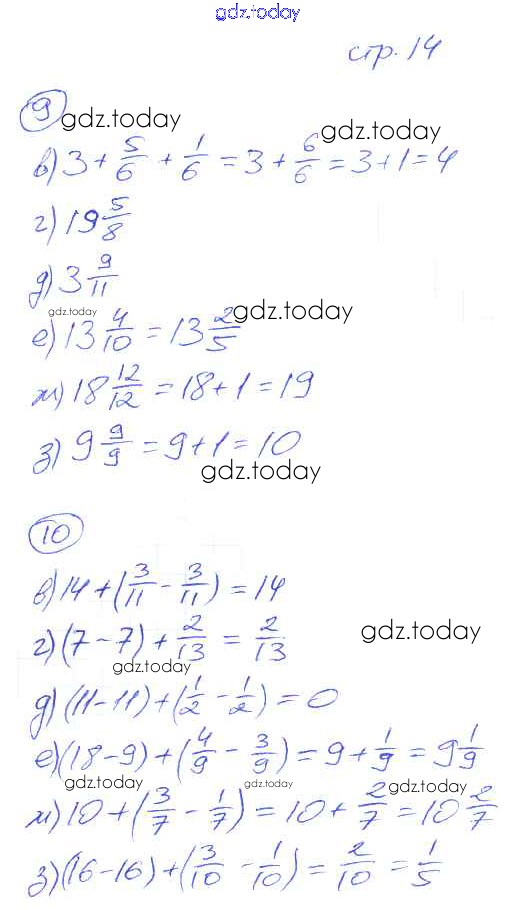 gdz.today
стр. 14
9 gdz.today
в) 3 + 5/6 + 1/6 = 3 + 6/6 = 3 + 1 = 4 gdz.today
г) 19 5/8
д) 3 9/11
gdz.today gdz.today
е) 13 4/10 = 13 2/5
ж) 18 12/12 = 18 + 1 = 19
з) 9 9/9 = 9 + 1 = 10
gdz.today
10
в) 14 + (3/11 - 3/11) = 14
г) (7 - 7) + 2/13 = 2/13 gdz.today
gdz.today
д) (11 - 11) + (1/2 - 1/2) = 0
е) (18 - 9) + (4/9 - 3/9) = 9 + 1/9 = 9 1/9
gdz.today gdz.today gdz.today
ж) 10 + (3/7 - 1/7) = 10 + 2/7 = 10 2/7
з) (16 - 16) + (3/10 - 1/10) = 2/10 = 1/5